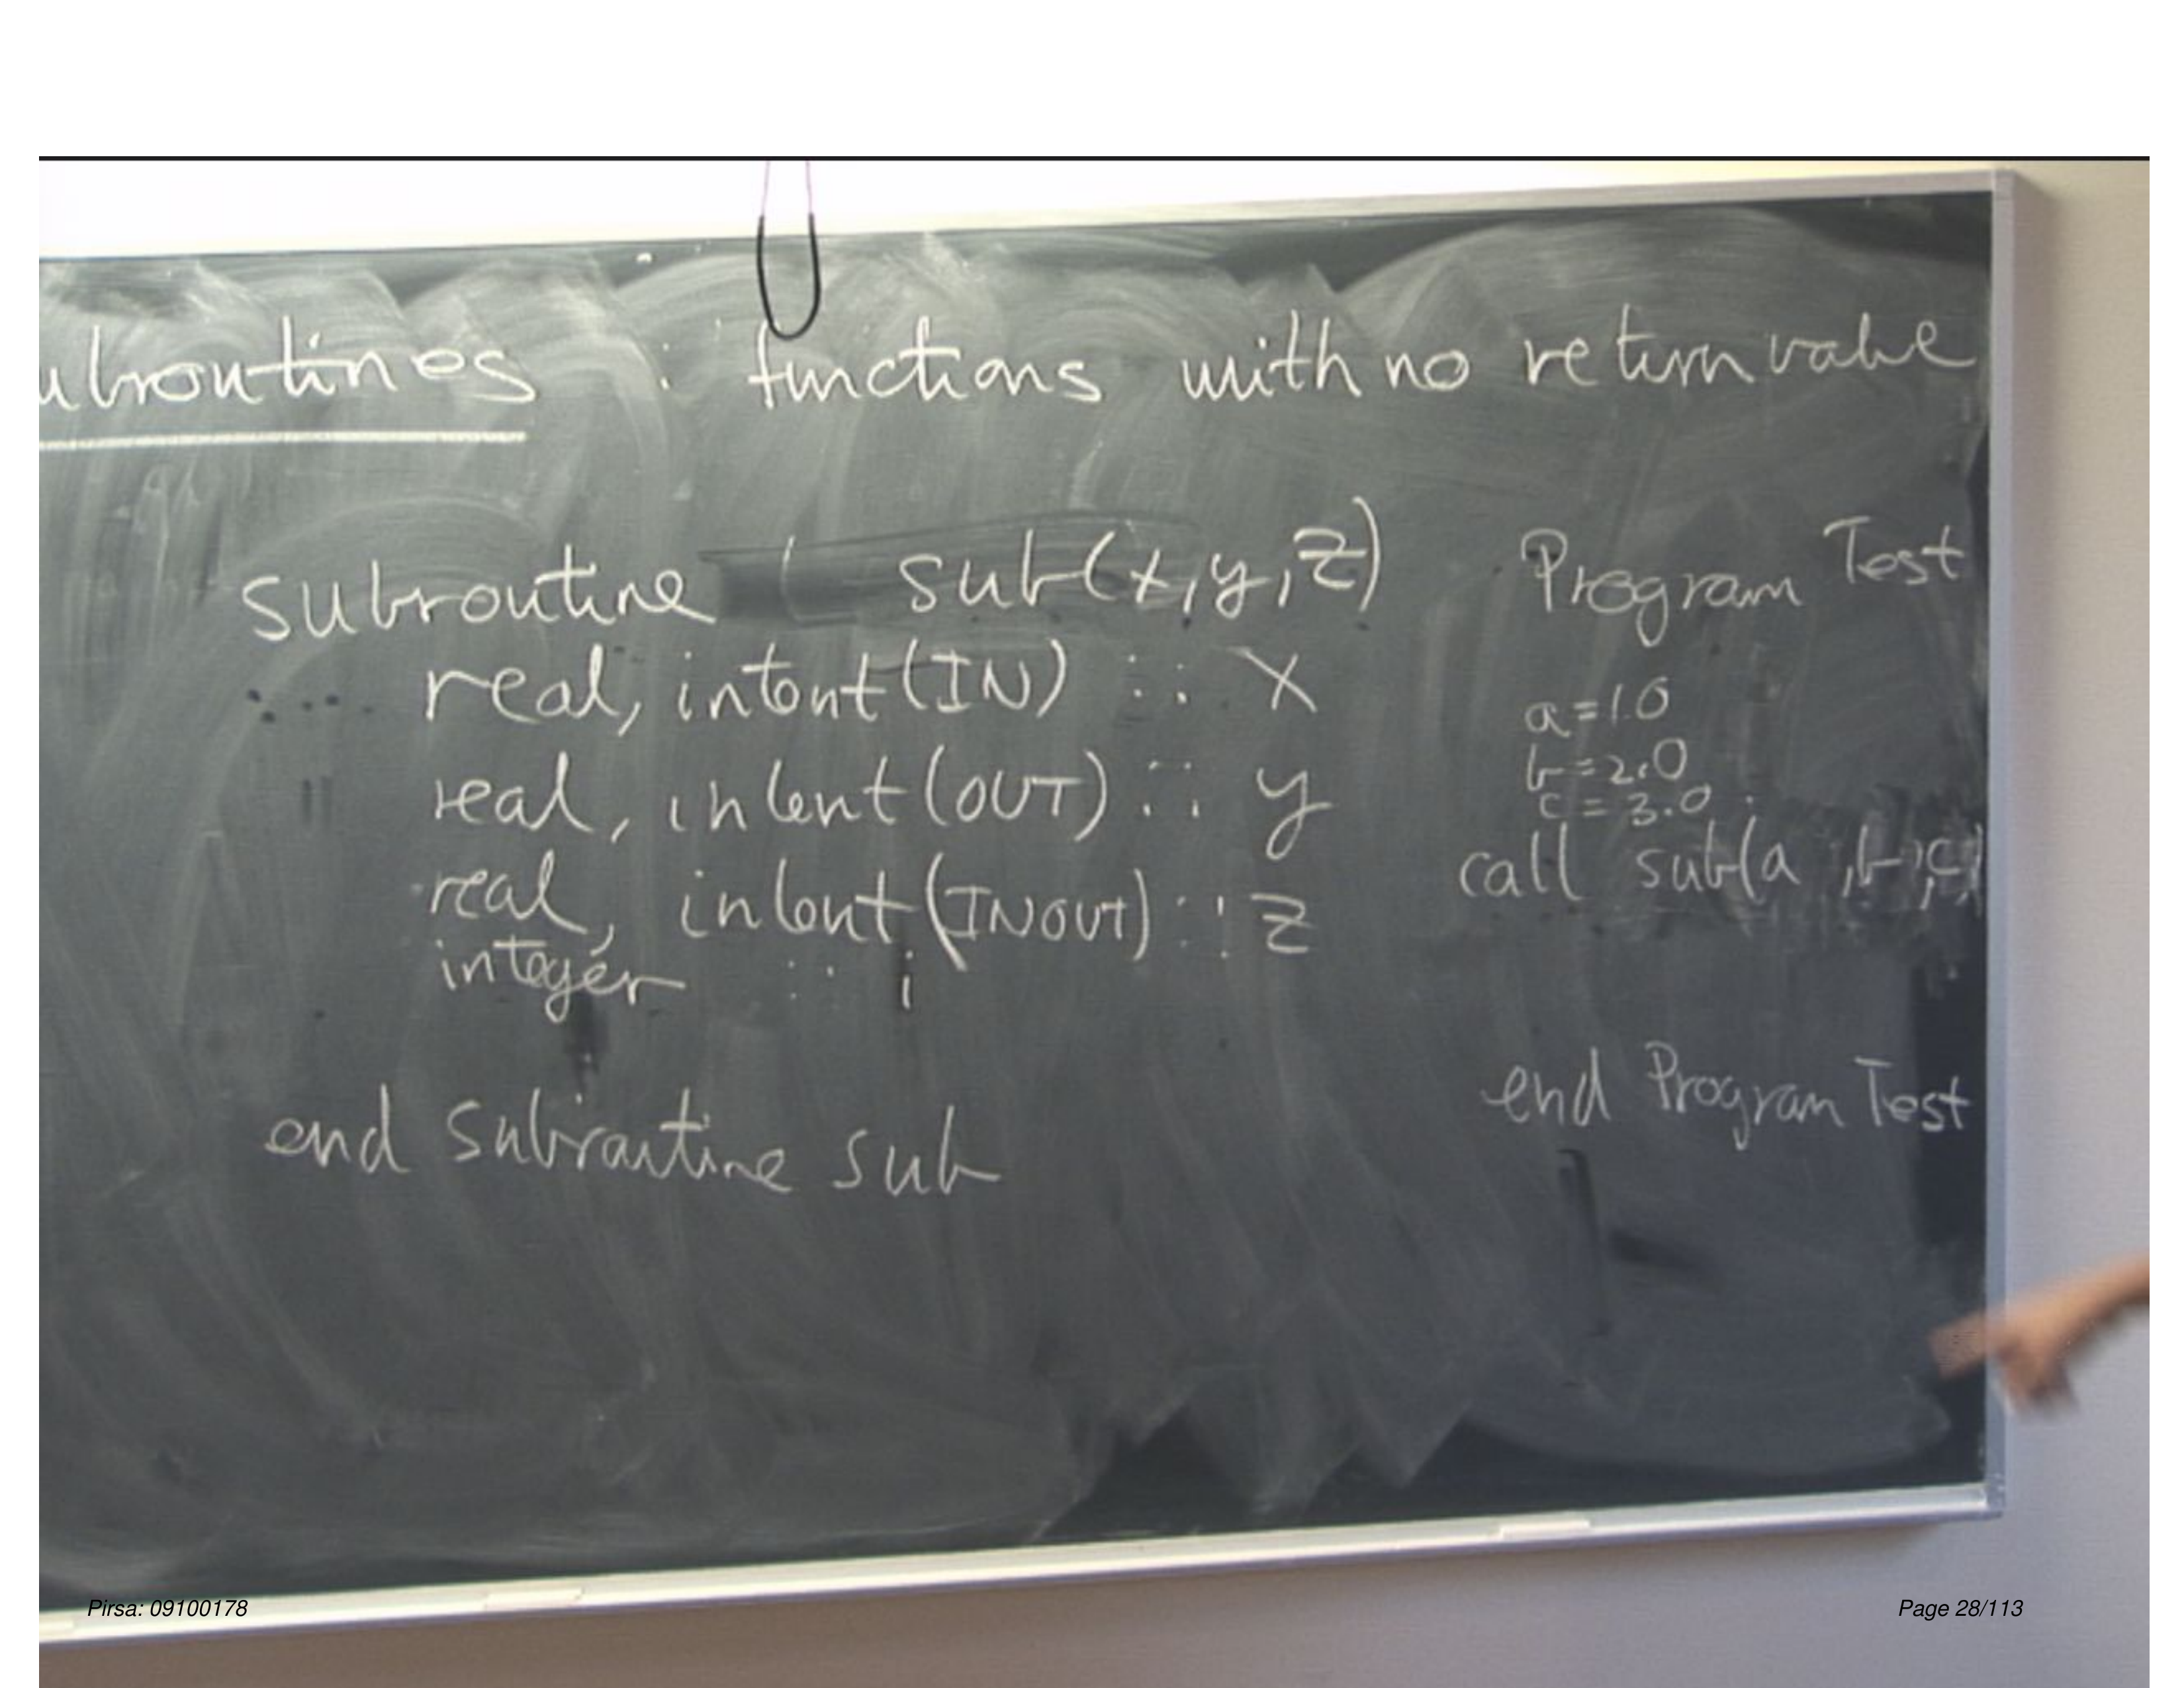 ubroutines : functions with no return value
subroutine sub(x,y,z)
real, intent(IN) :: x
real, intent(OUT) :: y
real, intent(INOUT) :: z
integer :: i
end subroutine sub
Program Test
a=1.0
b=2.0
c=3.0
call sub(a,b,c)
end Program Test
Pirsa: 09100178
Page 28/113